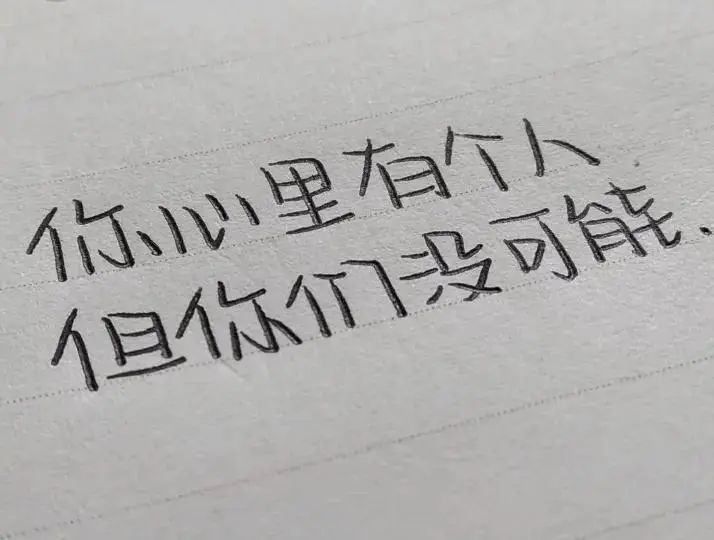 你心里有个人
但你们没可能.